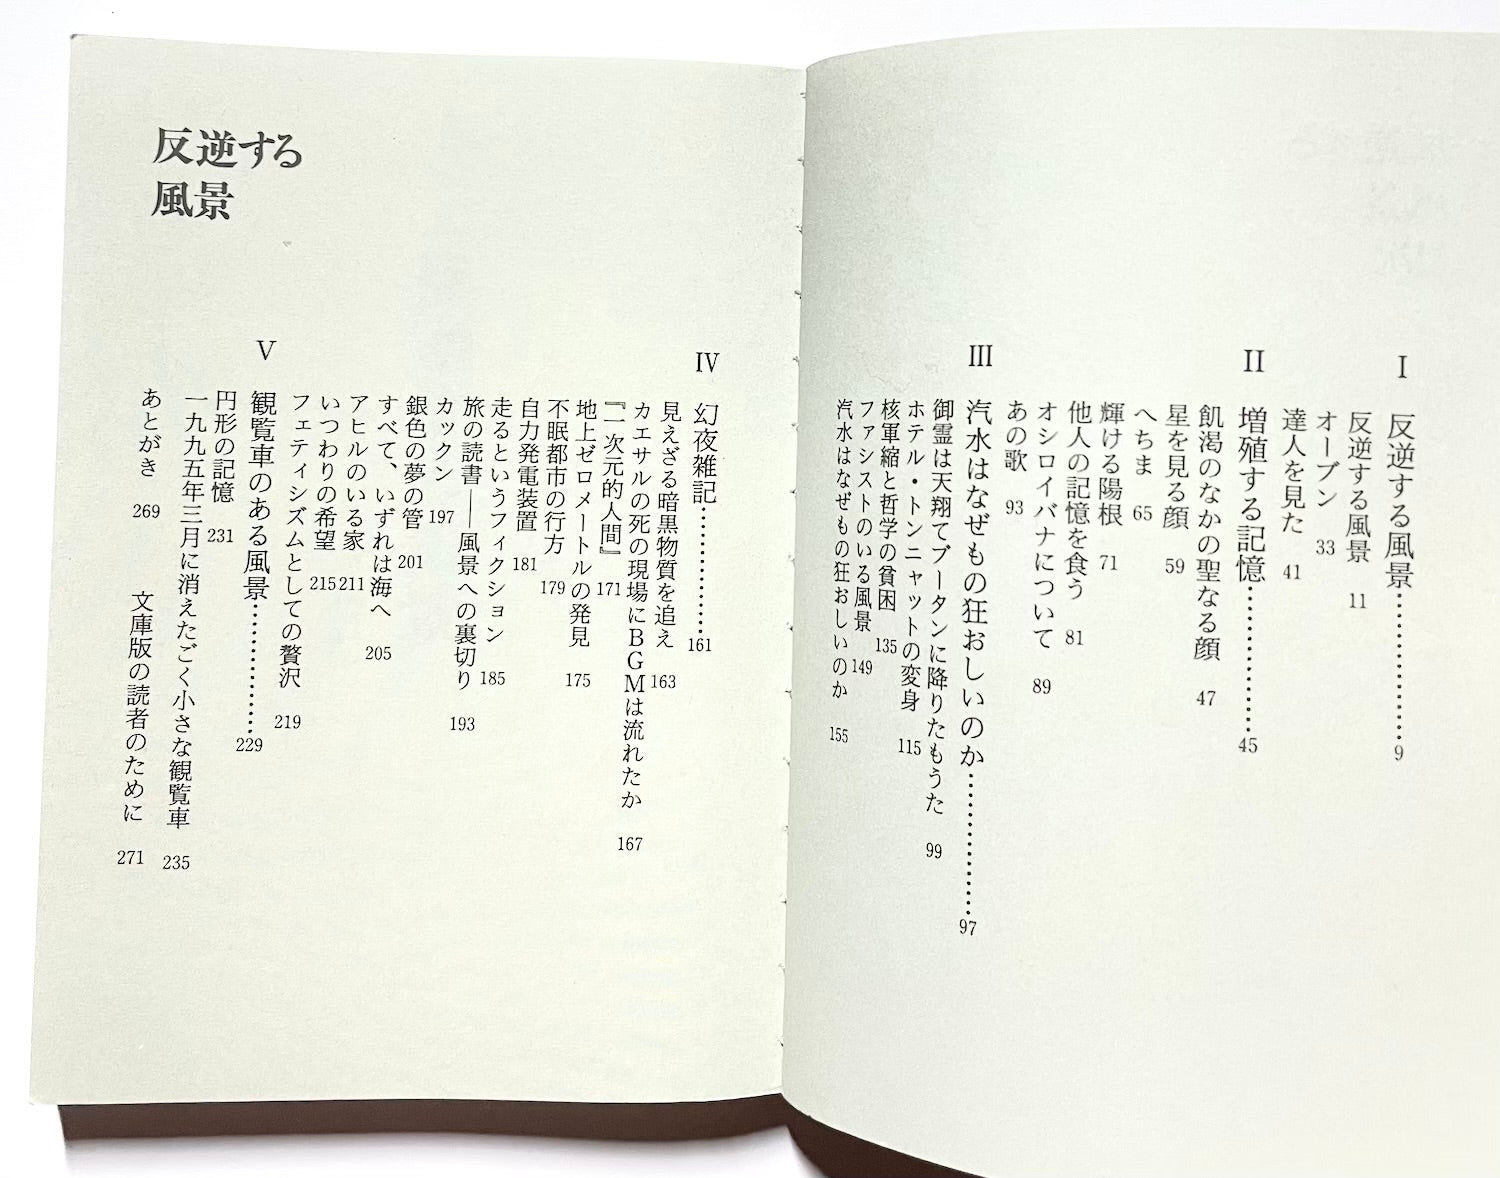 I
反逆する風景……………………9
反逆する風景 11
オーブン 33
達人を見た 41
II
増殖する記憶……………………45
飢渇のなかの聖なる顔 47
星を見る顔 59
へちま 65
輝ける陽根 71
他人の記憶を食う 81
オシロイバナについて 89
あの歌 93
III
汽水はなぜもの狂おしいのか……………………97
御霊は天翔てブータンに降りたもうた 99
ホテル・トンニャットの変身 115
核軍縮と哲学の貧困 135
ファシストのいる風景 149
汽水はなぜもの狂おしいのか 155
反逆する
風景
IV
幻夜雑記…………………161
見えざる暗黒物質を追え 163
カエサルの死の現場にBGMは流れたか 167
『一次元的人間』 171
地上ゼロメートルの発見 175
不眠都市の行方 179
自力発電装置 181
走るというフィクション 185
旅の読書――風景への裏切り 193
カックン 197
銀色の夢の管 201
すべて、いずれは海へ 205
アヒルのいる家 211
いつわりの希望 215
フェティシズムとしての贅沢 219
V
観覧車のある風景…………………229
円形の記憶 231
一九九五年三月に消えたごく小さな観覧車 235
あとがき 269
文庫版の読者のために 271